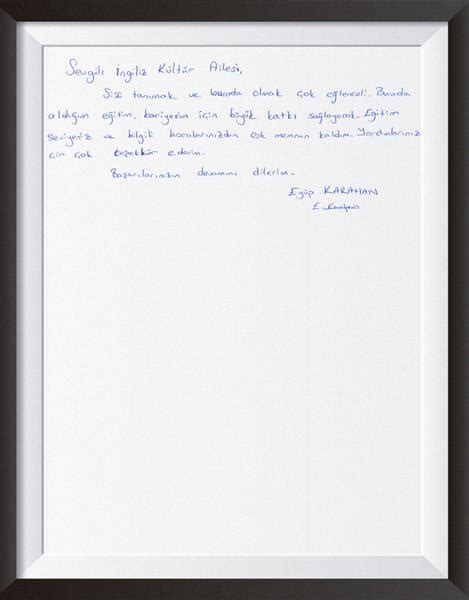 Sevgili İngiliz Kültür Ailesi,
Sizi tanımak ve burada olmak çok eğlenceli. Burada
aldığım eğitim, kariyerim için büyük katkı sağlayacak. Eğitim
seviyeniz ve bilgili hocalarınızdan çok memnun kaldım. Yardımlarınız
için çok teşekkür ederim.
Başarılarınızın devamını dilerim.
Eyüp KARAMAN
E. Karaman